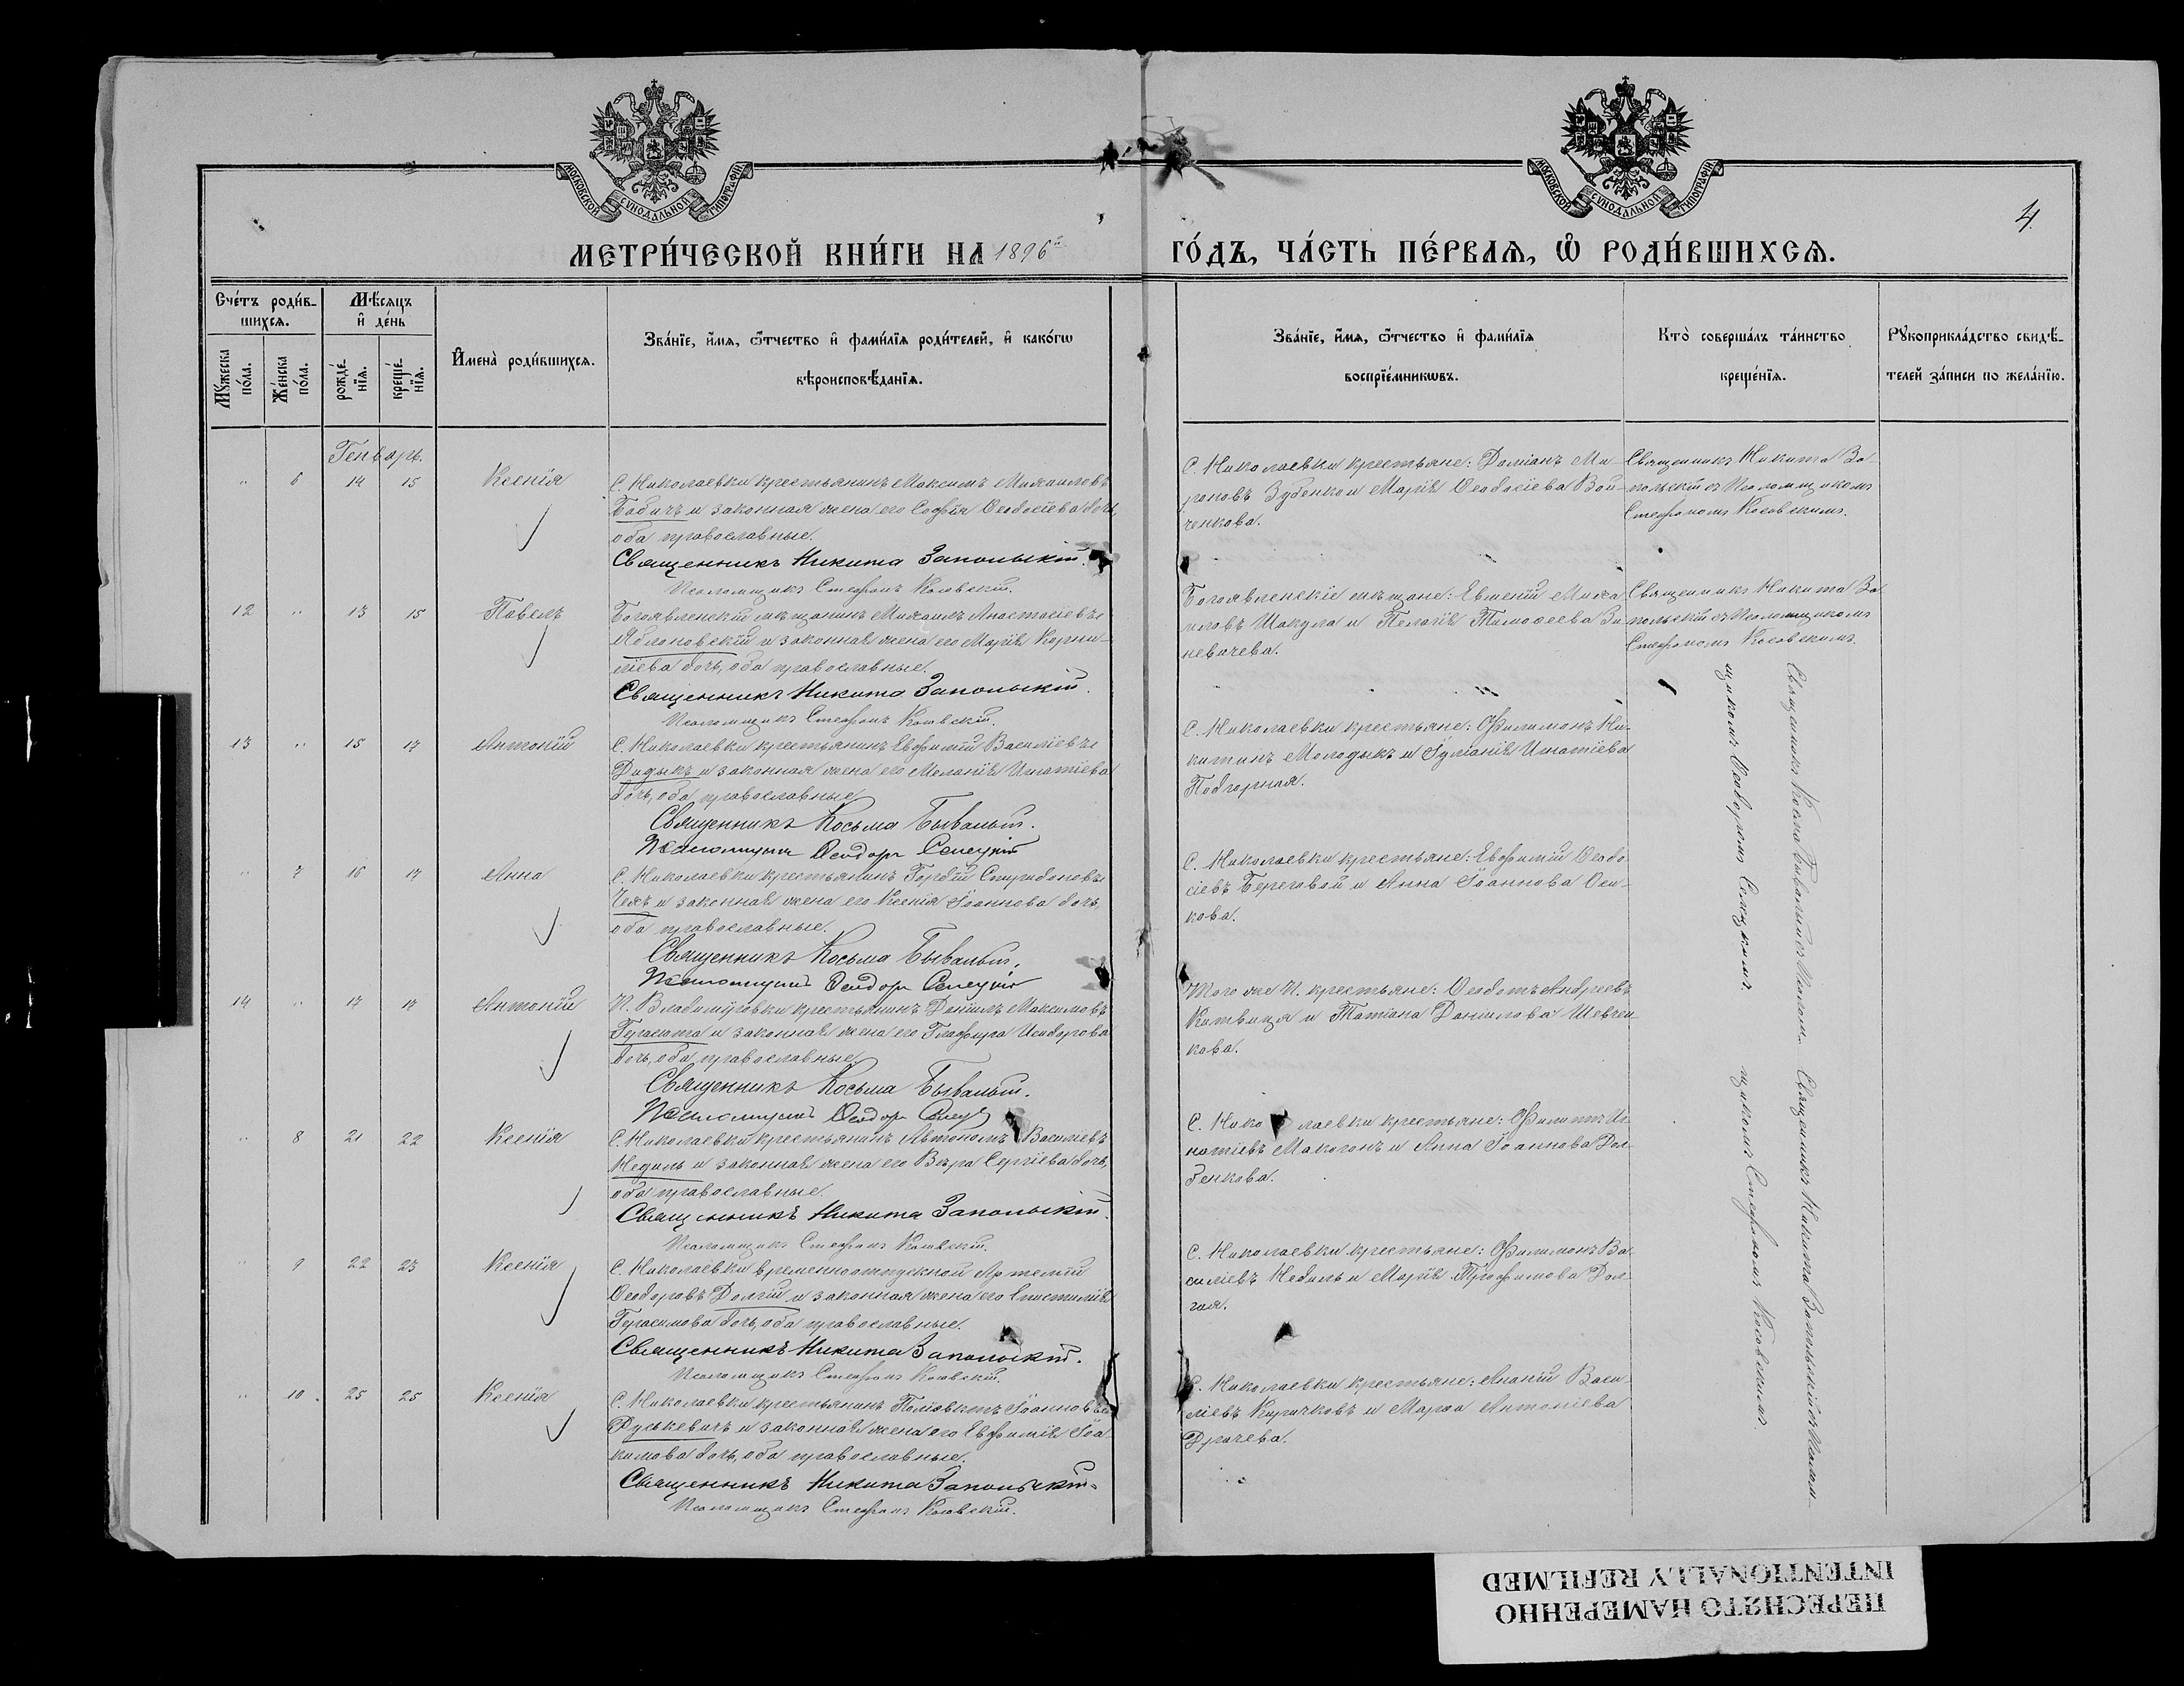 МОСКОВСКОЙ СУНОДАЛЬНОЙ ТИПОГРАФІИ
МОСКОВСКОЙ СУНОДАЛЬНОЙ ТИПОГРАФІИ
4.
МЕТРИ́ЧЕСКОЙ КНИ́ГИ НА 1896й
ГО́ДЪ, ЧА́СТЬ ПЕ́РВАѦ, Ѡ҆ РОДИ́ВШИХСѦ.
Сче́тъ роди́в-
шихсѧ.
Мꙋ́жеска по́ла.
Же́нска по́ла.
Мѣ́сѧцъ и҆ де́нь
рожде́-нїѧ.
креще́-нїѧ.
И҆мена̀ роди́вшихсѧ.
Зва́нїе, и҆́мѧ, ѻ҆́тчество и҆ фами́лїѧ роди́телей, и҆ како́гѡ
вѣроисповѣ́данїѧ.
Зва́нїе, и҆́мѧ, ѻ҆́тчество и҆ фами́лїѧ
воспрїе́мникѡвъ.
Кто̀ соверша́лъ та́инство
креще́нїѧ.
Рꙋкоприкла́дство свидѣ́-
телей за́писи по жела́нїю.
Генварь.
" 6 14 15 Ксенія
С. Николаевки крестьянинъ Максимъ Михаиловъ
Бабичъ и законная жена его Софія Ѳеодосіева дочь,
оба православные.
Священникъ Никита Запольскій.
Псаломщикъ Стефанъ Косовскій.
С. Николаевки крестьяне: Даміанъ Ми-
роновъ Зубенко и Марія Ѳеодосіева Вой-
ченкова.
Священникъ Никита За-
польскій съ Псаломщикомъ
Стефаномъ Косовскимъ.
12 " 13 15 Павелъ
Богоявленскій мѣщанинъ Михаилъ Анастасіевъ
Яблоновскій и законная жена его Марія Корни-
ліева дочь, оба православные.
Священникъ Никита Запольскій.
Псаломщикъ Стефанъ Косовскій.
Богоявленскіе мѣщане: Евменій Миха-
иловъ Шакула и Пелагія Тимоѳеева
Священникъ Никита За-
польскій съ Псаломщикомъ
Стефаномъ Косовскимъ.
13 " 15 17 Антоній
С. Николаевки крестьянинъ Евфимій Василіевъ
Дидыкъ и законная жена его Меланія Игнатіева
дочь, оба православные.
Священникъ Косьма Бывалый.
Псаломщикъ Ѳеодоръ Селецкій
С. Николаевки крестьяне: Филимонъ Ни-
китинъ Молодыкъ и Іуліанія Игнатіева
Подгорная.
Священникъ Косьма Бывалый съ Псалом-
щикомъ Ѳеодоромъ Селецкимъ.
" 7 16 17 Анна
С. Николаевки крестьянинъ Гордій Спиридоновъ
Чехъ и законная жена его Ксенія Іоаннова дочь,
оба православные.
Священникъ Косьма Бывалый.
Псаломщикъ Ѳеодоръ Селецкій
С. Николаевки крестьяне: Евфимій Ѳеодо-
сіевъ Береговой и Анна Іоаннова Оси-
кова.
14 " 17 17 Антоній
П. Владиміровки крестьянинъ Даніилъ Максимовъ
Гарасюта и законная жена его Глафира Исидорова
дочь, оба православные.
Священникъ Косьма Бывалый.
Псаломщикъ Ѳеодоръ Селец
Того же П. крестьяне: Ѳеодотъ Андреевъ
Китвиця и Татіана Даніилова Шевчен-
кова.
" 8 21 22 Ксенія
С. Николаевки крестьянинъ Автономъ Василіевъ
Недиль и законная жена его Вѣра Сергіева дочь,
оба православные.
Священникъ Никита Запольскій.
Псаломщикъ Стефанъ Косовскій.
С. Николаевки крестьяне: Филиппъ Иг-
натіевъ Макогонъ и Анна Іоаннова Дол-
бенкова.
Священникъ Никита Запольскій съ Псалом-
щикомъ Стефаномъ Косовскимъ.
" 9 22 23 Ксенія
С. Николаевки временноотпускной Артемій
Ѳеодоровъ Долгій и законная жена его Епистимія
Герасимова дочь, оба православные.
Священникъ Никита Запольскій.
Псаломщикъ Стефанъ Косовскій.
С. Николаевки крестьяне: Филимонъ Ва-
силіевъ Недиль и Марія Трофимова Дол-
гая.
" 10. 25 25 Ксенія
С. Николаевки крестьянинъ Поліевктъ Іоанновъ
Руськевичъ и законная жена его Евфимія Іоа-
кимова дочь, оба православные.
Священникъ Никита Запольскій.
Псаломщикъ Стефанъ Косовскій.
С. Николаевки крестьяне: Ананій Васи-
ліевъ Киричковъ и Марѳа Антоніева
Драчева.
ПЕРЕСНЯТО НАМЕРЕННО
INTENTIONALLY REFILMED